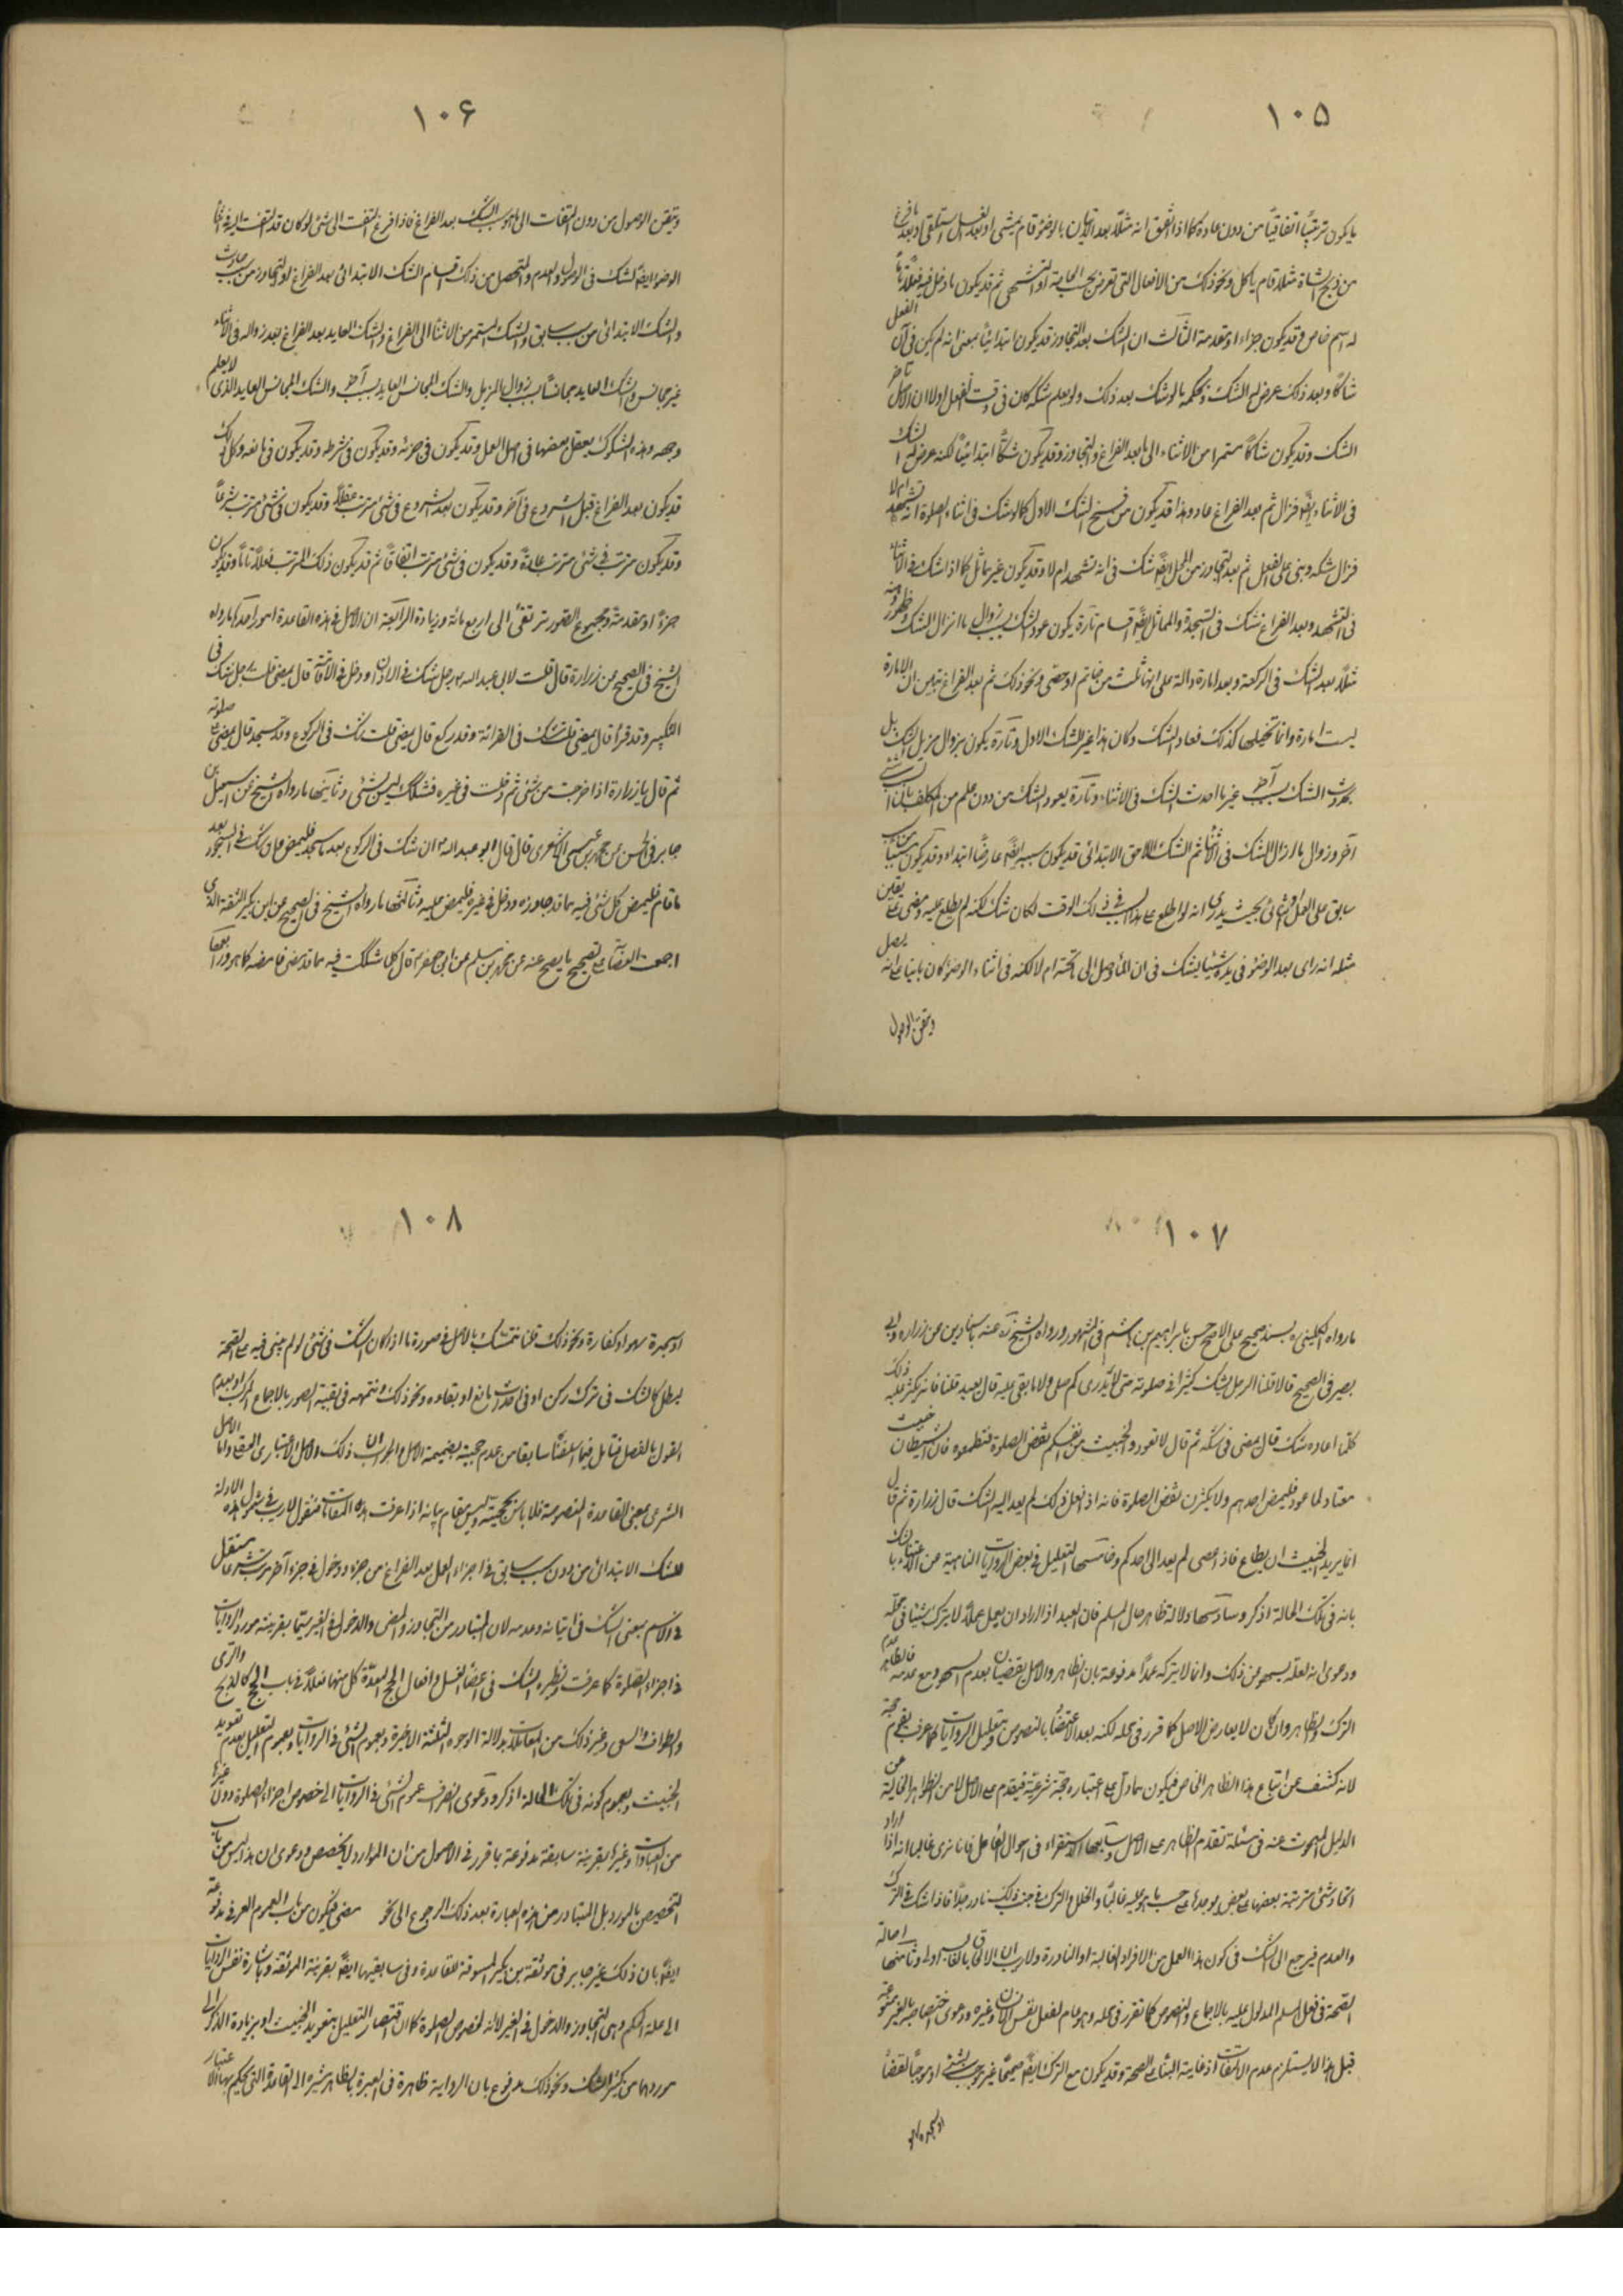 ١٠٥
يكون ترتبًا اتفاقيًا من دون عادة كما اذا اتفق انه مثلًا بعد الاتيان بالوضوء قام يمشى او بعد الغسل استلقى او بعد
من ذبح الشاة مثلا قام ياكل ونحو ذلك من الافعال التى تعرض بحسب الحاجة او التشهى ثم قد يكون ما دخل فيه فعلًا تامًا
له اسم خاص وقد يكون جزءا او مقدمة الثالث ان الشك بعد التجاوز قد يكون ابتدائيًا بمعنى انه لم يكن فى آن الفعل
شاكًا وبعد ذلك عرض له الشك وبحكمه ما لو شك بعد ذلك ولو يعلم شكه كان فى وقت الفعل اولا ان الاصل تاخر
الشك وقد يكون شاكًا مستمرا من الاثناء الى ما بعد الفراغ والتجاوز وقد يكون شكًا ابتدائيًا لكنه عرض له الشك
فى الاثناء ايضًا فزال ثم بعد الفراغ عاد وهذا قد يكون من سنخ الشك الاول كما لو شك فى اثناء الصلوة انه تشهد ام لا
فزال شكه وبنى على الفعل ثم بعد التجاوز من المحل ايضًا شك فى انه تشهد ام لا وقد يكون غير مماثل كما اذا شك فى الاثناء
فى التشهد وبعد الفراغ شك فى السجدة والمماثل ايضًا اقسام تارة يكون عود الشك بسبب زوال ما ازال الشك وظهور
مثلًا بعد الشك فى الركعة وبعد امارة دالة على انها ثلث من خاتم او حصى ونحو ذلك ثم بعد الفراغ تبين ان الامارة
ليست امارة وانما تخيلها كذلك فعاد الشك وكان هذا غير الشك الاول وتارة يكون بزوال مزيل الشك بل
بحدوث الشك بسبب آخر غير ما احدث الشك فى الاثناء وتارة يعود الشك من دون علم من المكلف
آخر وزوال ما ازال الشك فى الاثناء ثم الشك اللاحق الابتدائى قد يكون سببه ايضًا عارضًا ابتداء وقد يكون
سابق على العمل او فى اثنائه بحيث يدرى انه لو اطلع على هذا السبب فى ذلك الوقت لكان شك لكنه لم يطلع عليه ومضى على يقين
مثله انه راى بعد الوضوء فى يده شيئا يشك فى ان الماء وصل الى ما تحته ام لا لكنه فى اثناء الوضوء كان بانيا على انه يصل
وتيقن الوصول
١٠۶
وتيقن الوصول من دون التفات الى ما هو سبب الشك بعد الفراغ فاذا فرغ التفت الى شئ لو كان قد التفت اليه فى اثناء
الوضوء ايضًا لشك فى الوصول والعدم والمتحصل من ذلك اقسام الشك الابتدائى بعد الفراغ او التجاوز من سبب حادث
والشك الابتدائى من سبب سابق والشك المستمر من الاثناء الى الفراغ والشك العايد بعد الفراغ بعد زواله فى الاثناء
غير مجانس والشك العايد مجانسًا بسبب زوال المزيل والشك المجانس العايد بسبب آخر والشك المجانس العايد الذى لا يعلم
وجهه وهذه الشكوك يعقل بعضها فى اصل العمل وقد يكون فى جزئه وقد يكون فى شرطه وقد يكون فى مانعه وكل ذلك
قد يكون بعد الفراغ قبل الشروع فى آخر وقد يكون بعد الشروع فى شئ مترتب عقلًا وقد يكون فى شئ مترتب شرعًا
وقد يكون مترتب فى شئ مترتب عادة وقد يكون فى شئ مترتب اتفاقًا ثم قد يكون ذلك المترتب فعلًا تامًا وقد يكون
جزءًا او مقدمة ومجموع الصور ترتقى الى اربع مائة وزيادة الرابعة ان الاصل فى هذه القاعدة امور احدها ما رواه
الشيخ فى الصحيح عن زرارة قال قلت لابى عبد الله ع رجل شك فى الاذان ودخل فى الاقامة قال يمضى قلت رجل شك فى
التكبير وقد قرأ قال يمضى قلت شك فى القرائة وقد ركع قال يمضى قلت شك فى الركوع وقد سجد قال يمضى على صلوته
ثم قال يا زرارة اذا خرجت من شئ ثم دخلت فى غيره فشكك ليس بشئ وثانيها ما رواه الشيخ عن اسمعيل بن
جابر فى الحسن عن محمد بن عيسى الاشعرى قال قال ابو عبد الله ع ان شك فى الركوع بعد ما سجد فليمض وان شك فى السجود بعد
ما قام فليمض كل شئ فيه مما قد جاوزه ودخل فى غيره فليمض عليه وثالثها ما رواه الشيخ فى الصحيح عن ابن بكير الثقة الذى
اجمعت العصابة على تصحيح ما يصح عنه عن محمد بن مسلم عن ابى جعفر ع قال كلما شككت فيه مما قد مضى فامضه كما هو ورابعها
١٠٧
ما رواه الكلينى ره بسند صحيح على الاصح حسن بابراهيم بن هاشم فى المشهور ورواه الشيخ ره عنه باسنادين عن زراره وابى
بصير فى الصحيح قالا قلنا الرجل يشك كثيرا فى صلوته حتى لا يدرى كم صلى ولا ما بقى عليه قال يعيد قلنا فانه يكثر عليه ذلك
كلما اعاد شك قال يمضى فى شكه ثم قال لا تعودوا الخبيث من انفسكم بنقض الصلوة فتطمعوه فان الشيطان خبيث
معتاد لما عود فليمض احدهم ولا يكثرن نقض الصلوة فانه اذا فعل ذلك لم يعد اليه الشك قال زرارة ثم قال
انما يريد الخبيث ان يطاع فاذا عصى لم يعد الى احدكم وخامسها التعليل فى بعض الروايات الناهية عن الاعتناء بالشك
بانه فى تلك الحالة اذكر وسادسها دلالة ظاهر حال المسلم فان العبد اذا اراد ان يعمل عملًا لا يترك شيئا فى محله
ودعوى انه لعله يسهو عن ذلك وانما لا يتركه عمدًا مدفوعة بان الظاهر والاصل يقضيان بعدم السهو ومع عدمه فالظاهر عدم
الترك والظاهر وان كان لا يعارض الاصل كما قرر فى محله لكنه بعد الاعتضاد بالنصوص وبتعليل الروايات كما عرفت يقوم حجة
لانه كشف عن اتباع هذا الظاهر الخاص فيكون مما دل على اعتباره حجة شرعية فيقدم على الاصل لا من الظواهر الخالية عن
الدليل المبحوث عنه فى مسئلة تقدم الظاهر على الاصل وسابعها الاستقراء فى احوال الفاعل فانا نرى غالبا انه اذا اراد
اتخاذ شئ مترتبة بعضها على بعض يوجدها على حسب ما هو عليه غالبًا والخلل والترك فى جنب ذلك نادر جدًا فاذا شك فى الترك
والعدم فيرجع الى الشك فى كون هذا العمل من الافراد الغالبة او النادرة ولا ريب ان الالحاق بالغالب اولى وثامنها اصالة
الصحة فى فعل المسلم المدلول عليه بالاجماع والنصوص كما تقرر فى محله وهو عام لفعل نفس الانسان وغيره ودعوى اختصاصه بالغير ممنوعة
قيل هذا لا يستلزم عدم الالتفات اذ غاية البناء على الصحة وقد يكون مع الترك ايضًا صحيحًا غير موجب لشئ او موجبًا لقضاء
او سجدة سهو
١٠٨
او سجدة سهو او كفارة ونحو ذلك قلنا نتمسك بالاصل فى صورة ما اذا كان الشك فى شئ لو لم يبن فيه على الصحة
لبطل كالشك فى ترك ركن او فى احداث مانع او بقائه ونحو ذلك ونتممه فى بقية الصور بالاجماع المركب او بعدم
القول بالفصل فتامل فيما اسلفنا سابقا من عدم حجية ضميمة الاصل والجواب ان ذلك الاصل الاعتبارى العقلى واما الاصل
الشرعى بمعنى القاعدة المنصوصة فلا باس بحجيته وليس مقام بيانه اذا عرفت هذه المقامات فنقول لا ريب فى شمول هذه الادلة
للشك الابتدائى من دون سبب سابق فى اجزاء العمل بعد الفراغ من جزء ودخول فى جزء آخر مترتب شرعًا مستقل
فى الاسم بمعنى الشك فى اتيانه وعدمه لان المتبادر من التجاوز والمضى والدخول فى الغير سيما بقرينة مورد الروايات
فى اجزاء الصلوة كما عرفت ونظيره الشك فى اعضاء الغسل وافعال الحج المعدة كل منها فعلًا فى باب الحج كالذبح والرمى
والطواف والسعى وغير ذلك من المقامات لدلالة الوجوه الثلثة الاخيرة وبعموم الشئ فى الروايات وبعموم التعليل بعدم تعويد
الخبيث وبعموم كونه فى تلك الحالة اذكر ودعوى انصراف عموم الشئ فى الروايات الى خصوص اجزاء الصلوة دون غيرها
من العبادات وغيرها بقرينة سابقة مدفوعة بما قرر فى الاصول من ان الموارد لا يخصص ودعوى ان هذا ليس من باب
التخصيص بالمورد بل المتبادر من هذه العبارة بعد ذلك الرجوع الى نحو مضى فيكون من باب العموم العرفى مدفوعة
ايضًا بان ذلك غير صابر فى موثقة بن بكير المسوقة للقاعدة وفى سابقيها ايضًا بقرينة الموثقة وباشارة نفس الروايات
الى علة الحكم وهى التجاوز والدخول فى الغير لا انه لخصوص الصلوة كما ان اقتصار التعليل بتعويد الخبيث او بزيادة الذكر الى
موردهما من كثير الشك ونحو ذلك مدفوع بان الرواية ظاهرة فى العبرة بالظاهر مشيرة الى القاعدة التى يحكم بها الاعتبار